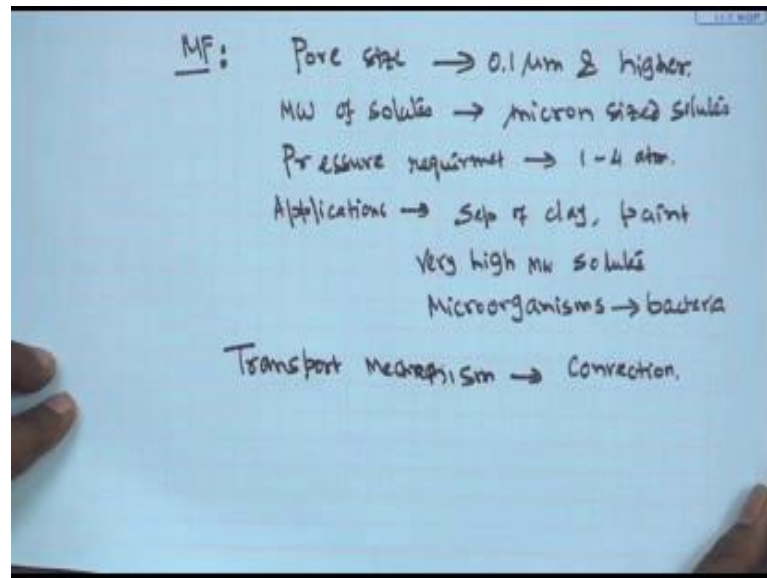 MF: Pore size → 0.1 μm & higher.
MW of solutes → micron sized solutes
Pressure requirmet → 1-4 atm.
Applications → Sep of clay, paint
Very high MW solutes
Microorganisms → bacteria
Transport mechanism → Convection.